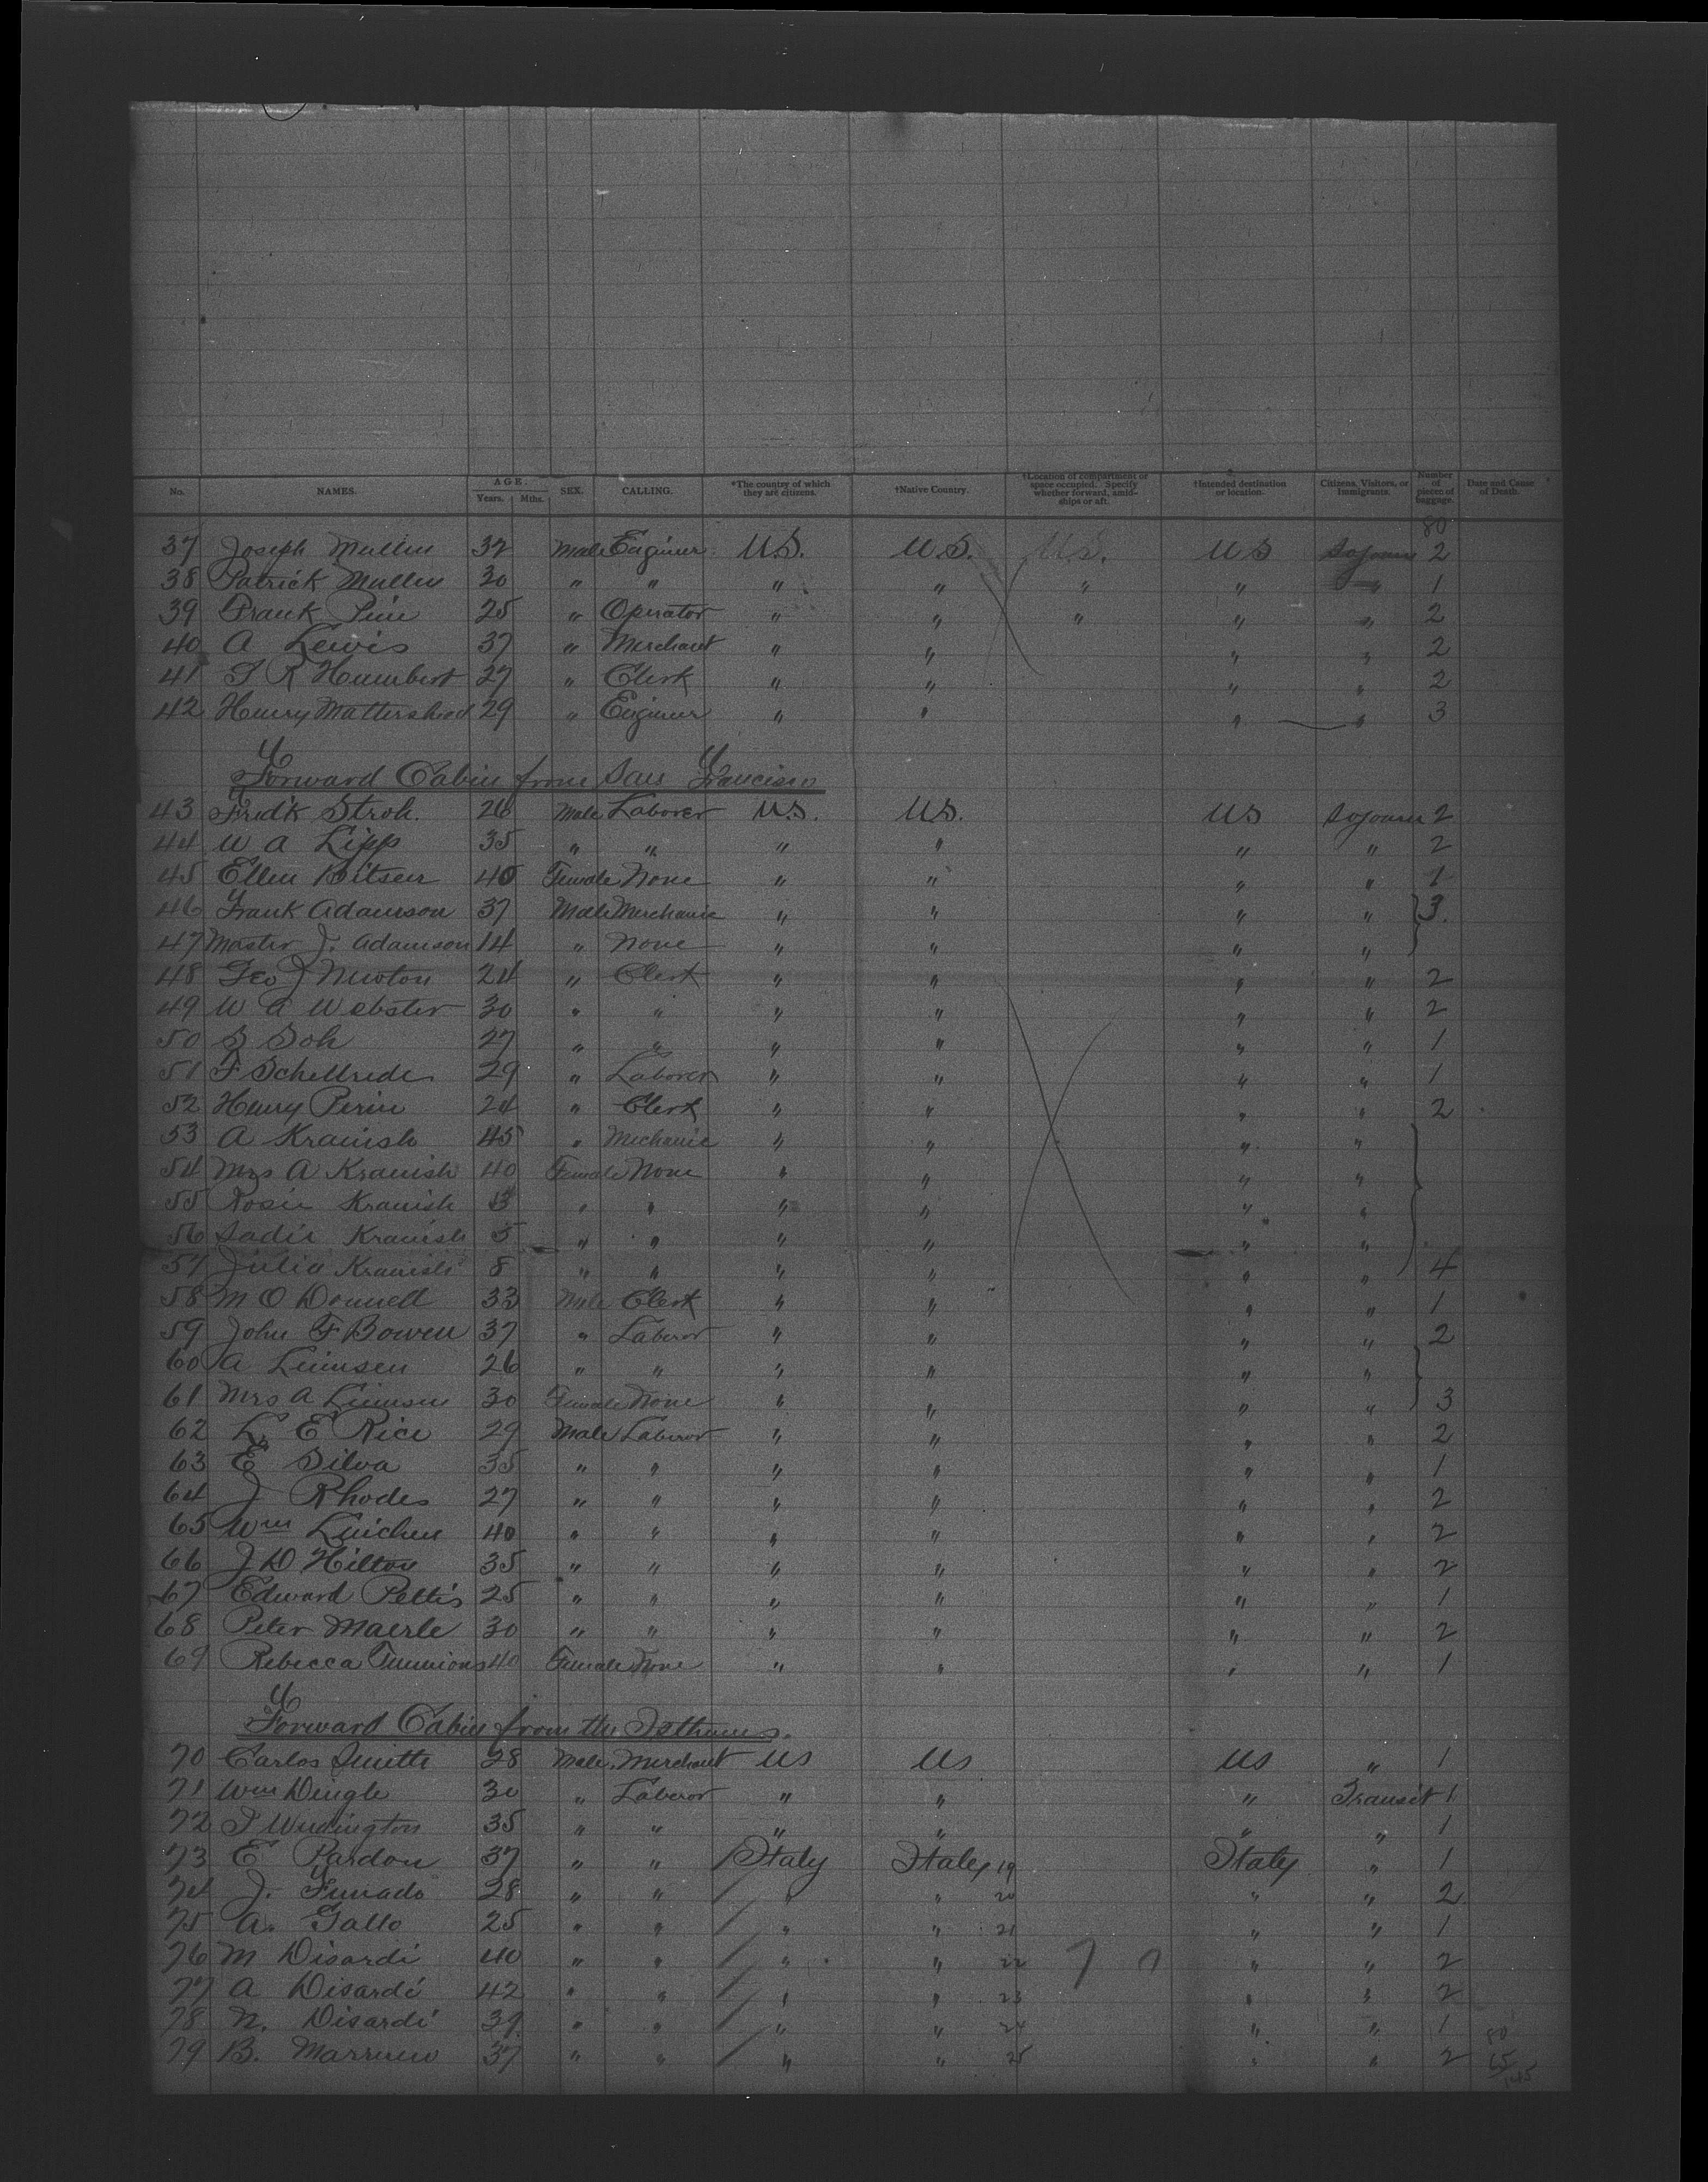 No. NAMES. AGE. Years. Mths. SEX. CALLING. *The country of which they are citizens. †Native Country †Location of compartment or space occupied. Specify whether forward, amidships or aft. †Intended destination or location. Citizens, Visitors, or Immigrants. Number of pieces of baggage. Date and Cause of Death.
80
37 Joseph Mullin 32 Male Enginer U.S. U.S. U.S. US Sojourn 2
38 Patrick Mullin 30 " " " " " " " 1
39 Frank 25 " Operator " " " " " 2
40 A Lewis 37 " Merchant " " " " 2
41 R Humbert 27 " Clerk " " " " 2
42 Henry Mattershead 29 " Enginer " " " " 3
Forward Cabin from San Francisco
43 Fredk Stroh. 26 Male Laborer U.S. US. US Sojourn 2
44 W A Lipp 35 " " " " " " 2
45 Ellen Bitsen 40 Female None " " " " 1
46 Frank Adamson 37 Male Merchanic " " " " 3.
47 Master J. Adamson 14 " None " " " "
48 Geo J Newton 24 " Clerk " " " " 2
49 W A Webster 30 " " " " " " 2
50 S Soh 27 " " " " " " 1
51 F 29 " Laborer " " " " 1
52 Henry Perin 24 " Clerk " " " " 2
53 A Kranish 45 " Mechanic " " " "
54 Mrs A Kranish 40 Female None " " " "
55 Rosie Kranish " " " " " "
56 Sadie Kranish 5 " " " " " "
57 Julia Kranish 8 " " " " " " 4
58 M O Donnell 33 Male Clerk " " " " 1
59 John F Bowen 37 " Laberor " " " " 2
60 A Linnsen 26 " " " " " "
61 Mrs A Linnsen 30 Female None " " " " 3
62 L. E Rice 29 Male Laberor " " " " 2
63 E Silva 35 " " " " " " 1
64 J Rhodes 27 " " " " " " 2
65 Wm 40 " " " " " " 2
66 J D Hilton 35 " " " " " " 2
67 Edward Pettis 25 " " " " " " 1
68 Peter Maerle 30 " " " " " " 2
69 Rebecca 40 Female None " " " " 1
Forward Cabin from the Isthmus.
70 Carlos Smith 28 Male. Merchant US US US " 1
71 Wm Dingle 30 " Laberor " " " Transit 1
72 35 " " " " " " 1
73 E Pardon 37 " " Italy Italy 19 Italy " 1
74 J. Funado 28 " " " " 20 " " 2
75 A. Gallo 25 " " " " 21 " " 1
76 M Disardi 40 " " " " 22 " " 2
77 A Disardi 42 " " " " 23 " " 2
78 N. Disardi 39 " " " " 24 " " 1
79 B. 37 " " " " 25 " " 2
80
65
145